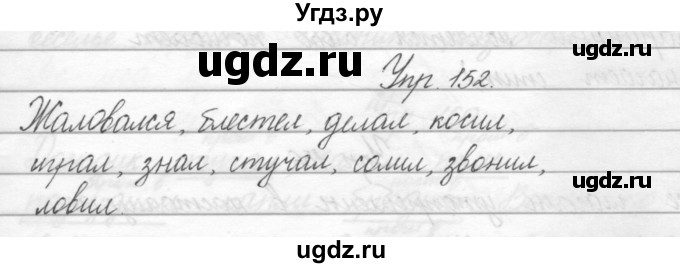 Угдз.ру
ugdz.ru
Упр. 152.
ugdz.ru
Жаловался, блестел, делал, косил,
играл, знал, стучал, солил, звонил,
ugdz.ru
ловил.
ugdz.ru